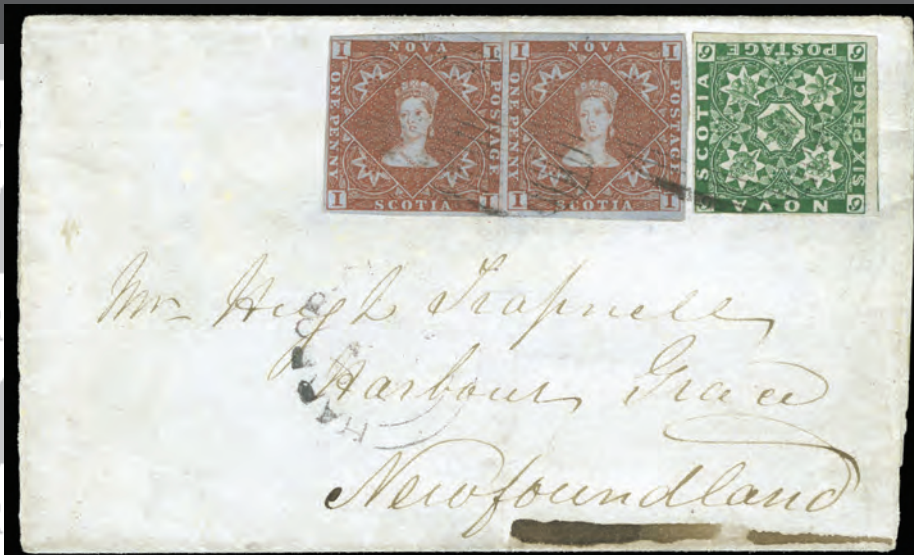 1 NOVA 1
ONE PENNY
POSTAGE
1 SCOTIA 1
1 NOVA 1
ONE PENNY
POSTAGE
1 SCOTIA 1
6 POSTAGE 6
SCOTIA
SIX PENCE
6 NOVA 6
Mr Hugh Trapnell
Harbour Grace
Newfoundland